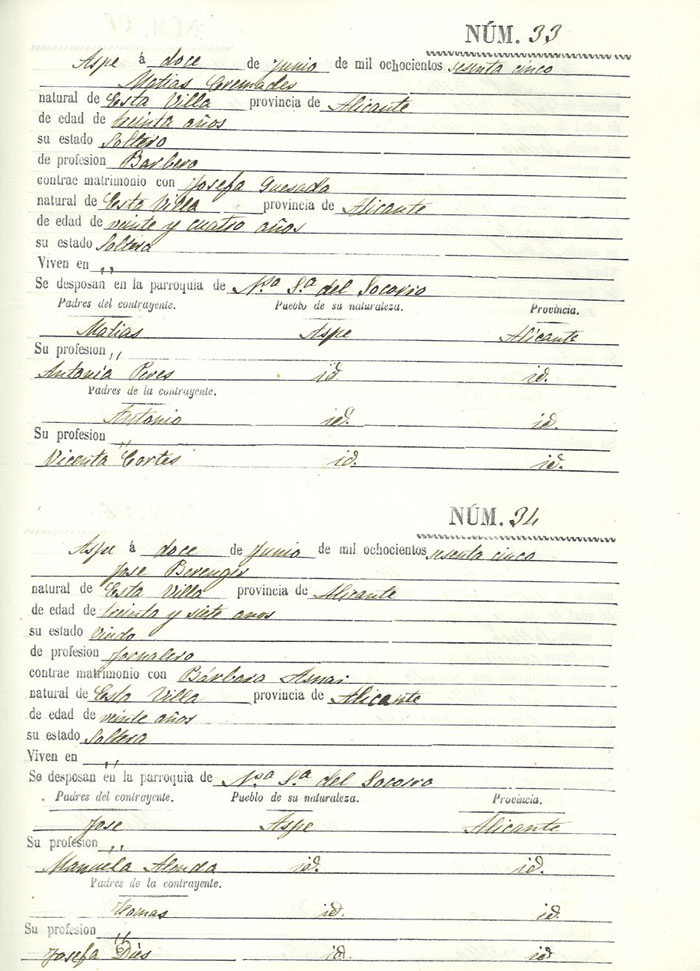 NÚM. 33
Aspe á doce de Junio de mil ochocientos sesenta cinco
Matias Cremades
natural de Esta Villa provincia de Alicante
de edad de treinta años
su estado Soltero
de profesion Barbero
contrae matrimonio con Josefa Quesada
natural de Esta Villa provincia de Alicante
de edad de veinte y cuatro años
su estado Soltera
Viven en ,,
Se desposan en la parroquia de Nsa Sa del Socorro
Padres del contrayente. Pueblo de su naturaleza. Provincia.
Matias Aspe Alicante
Su profesion ,,
Antonia Peres id. id.
Padres de la contrayente.
Antonio id. id.
Su profesion ,,
Vicenta Cortes id. id.
NÚM. 34
Aspe á doce de Junio de mil ochocientos sesenta cinco
Jose Berenger
natural de Esta Villa provincia de Alicante
de edad de treinta y siete años
su estado viudo
de profesion Jornalero
contrae matrimonio con Bárbara
natural de Esta Villa provincia de Alicante
de edad de veinte años
su estado Soltera
Viven en ,,
Se desposan en la parroquia de Nsa Sa del Socorro
Padres del contrayente. Pueblo de su naturaleza. Provincia.
Jose Aspe Alicante
Su profesion ,,
Manuela Alenda id. id.
Padres de la contrayente.
Tomas id. id.
Su profesion ,,
Josefa Dies id. id